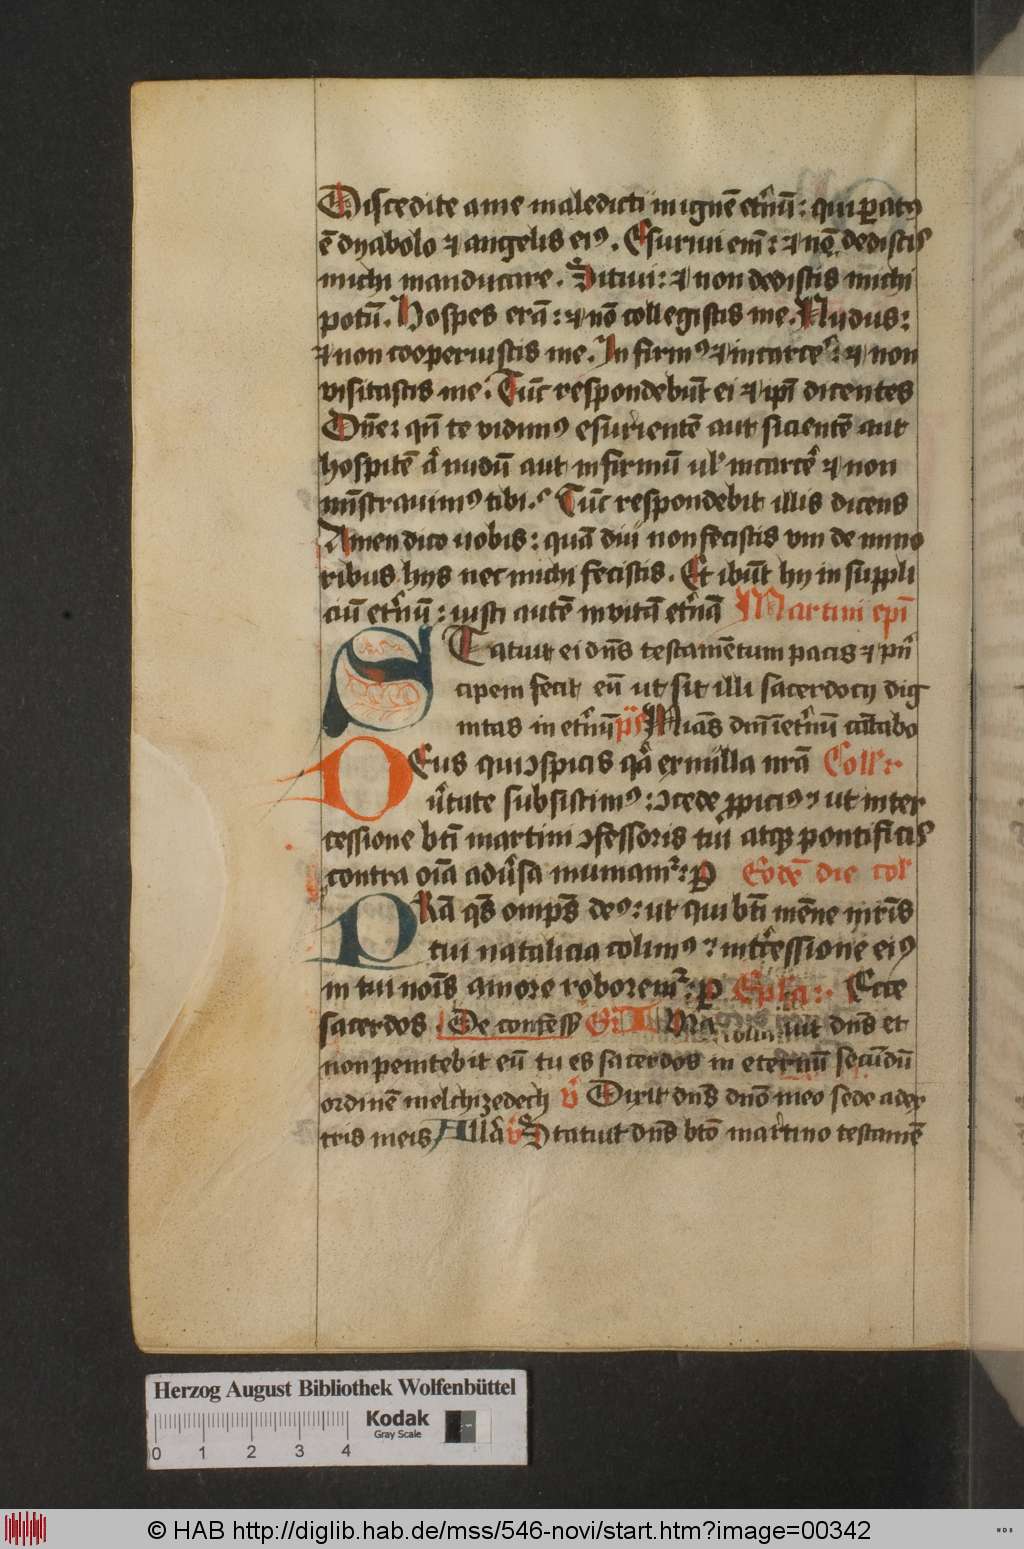 Discedite a me maledicti in ignē et̾nū: qui ꝑatꝰ
ē dyabolo ⁊ angelis eiꝰ. Esuriui em̄: ⁊ nō dedistis
michi manducare. Sitiui: ⁊ non dedistis michi
potū. Hospes erā: ⁊ nō collegistis me. Nudus:
⁊ non cooperuistis me. Infirmꝰ ⁊ in carce᷑: ⁊ non
visitastis me. Tūc respondebūt ei ⁊ ip̄i dicentes
Dn̄e: qn̄ te vidimꝰ esurientē aut sicientē aut
hospitē a᷑ nudū aut infirmū ul' in carcē ⁊ non
mīstrauimꝰ tibi. Tūc respondebit illis dicens
Amen dico uobis: quā diu non fecistis vni de mino
ribus hys nec michi fecistis. Et ibūt hy in suppli
ciū et̾nū: iusti autē in vitā et̾nā Martini ep̄i
STatuit ei dn̄s testamētum pacis ⁊ pn̄
cipem fecit eū ut sit illi sacerdocij dig
nitas in et̾nū p̄s Mias dn̄i ī et̾nū cātabo
DEus qui ↄspicis qa᷑ ex nulla nr̄a Coll'
v̾tute subsistimꝰ: ↄcede ꝓpiciꝰ ut inter
cessione bt̄i martini ↄfessoris tui atqꝫ pontificis
contra oīa adu̾sa muniamr᷑: ꝑ Eodē die col'
DA q̄s om̄ps deꝰ: ut qui bt̄i mēne mr̄is
tui natalicia colimꝰ int̾cessione eiꝰ
in tui noīs amore roboremr᷑: ꝑ Ep̄la: Ecce
sacerdos De confess' Gͣ
non penitebit eū tu es sacerdos in eternū secūdū
ordinē melchizedech v̾ Dixit dn̄s dn̄o meo sede a dex
tris meis All'a v̾ Statuit dn̄s bt̄o martino testamē
Herzog August Bibliothek Wolfenbüttel
Kodak
Gray Scale
0 1 2 3 4
© HAB http://diglib.hab.de/mss/546-novi/start.htm?image=00342